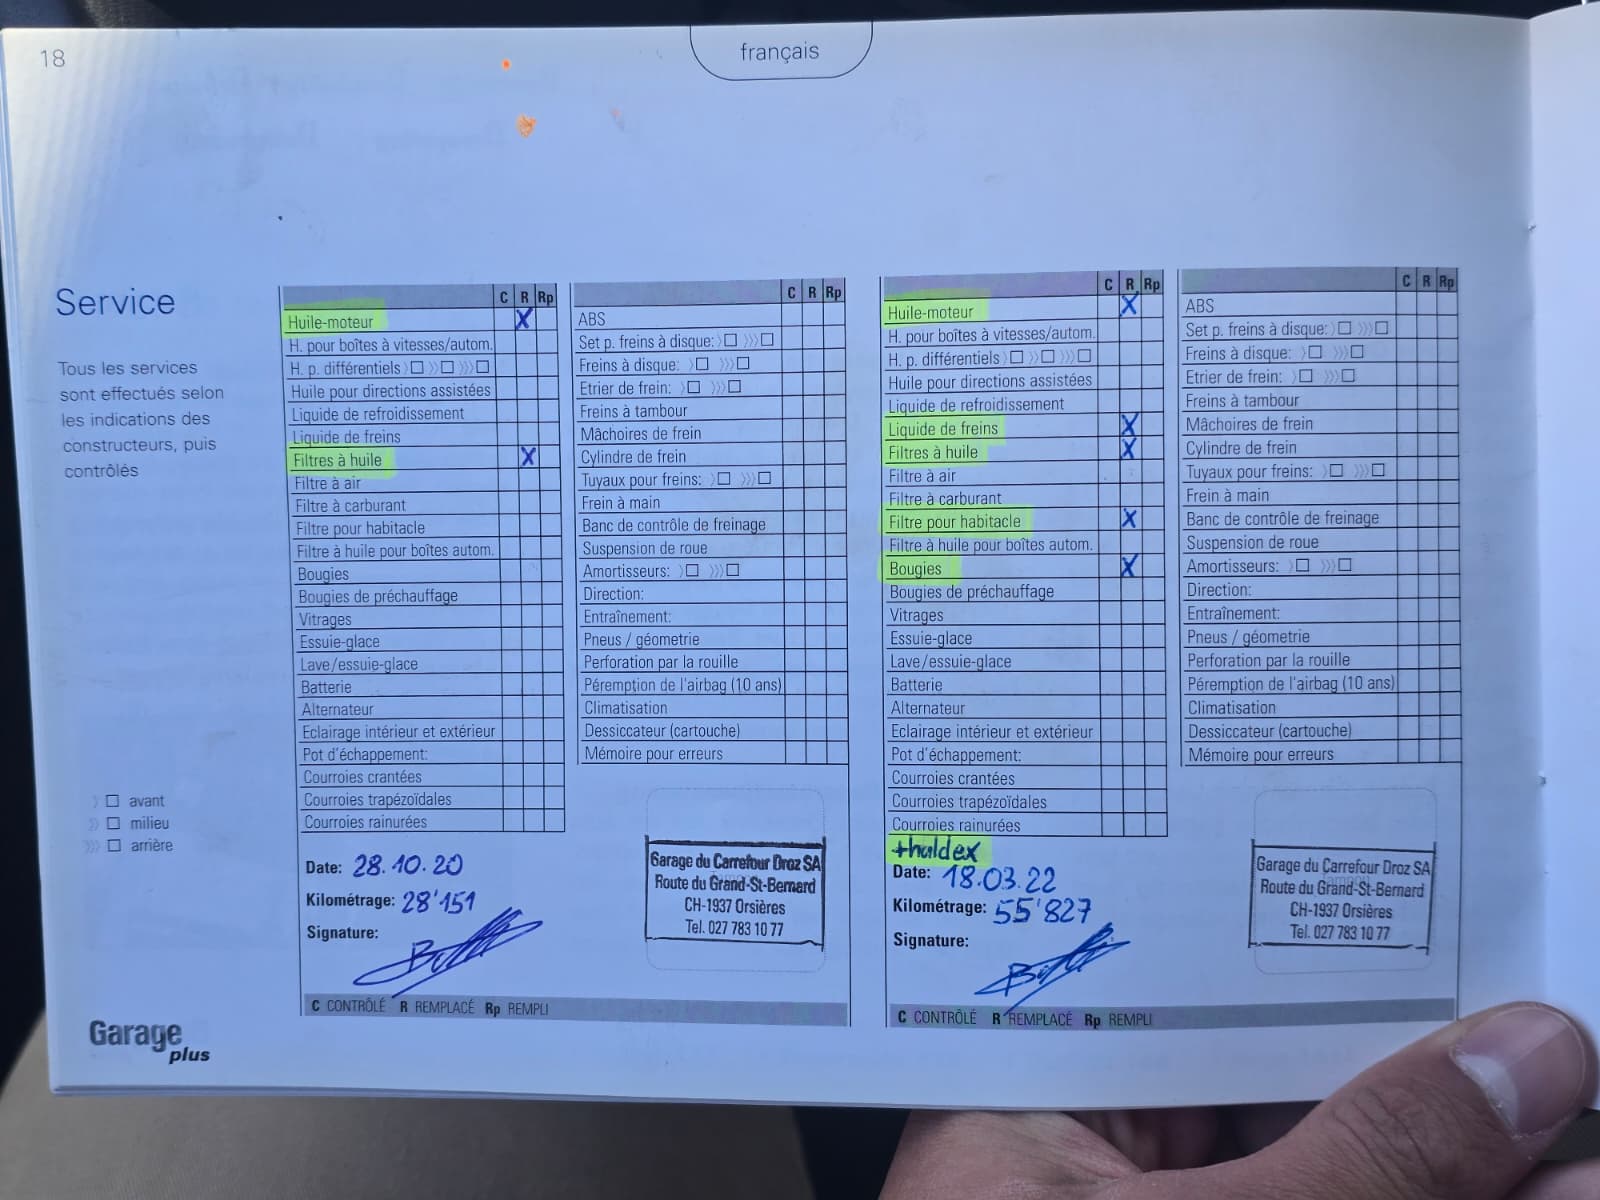 18
français
Service
Tous les services
sont effectués selon
les indications des
constructeurs, puis
contrôlés
avant
milieu
arrière
Garage
plus
C R Rp
Huile-moteur X
H. pour boîtes à vitesses/autom.
H. p. différentiels
Huile pour directions assistées
Liquide de refroidissement
Liquide de freins
Filtres à huile X
Filtre à air
Filtre à carburant
Filtre pour habitacle
Filtre à huile pour boîtes autom.
Bougies
Bougies de préchauffage
Vitrages
Essuie-glace
Lave/essuie-glace
Batterie
Alternateur
Eclairage intérieur et extérieur
Pot d'échappement:
Courroies crantées
Courroies trapézoïdales
Courroies rainurées
Date: 28.10.20
Kilométrage: 28'151
Signature:
C R Rp
ABS
Set p. freins à disque:
Freins à disque:
Etrier de frein:
Freins à tambour
Mâchoires de frein
Cylindre de frein
Tuyaux pour freins:
Frein à main
Banc de contrôle de freinage
Suspension de roue
Amortisseurs:
Direction:
Entraînement:
Pneus / géometrie
Perforation par la rouille
Péremption de l'airbag (10 ans)
Climatisation
Dessiccateur (cartouche)
Mémoire pour erreurs
Garage du Carrefour Droz SA
Route du Grand-St-Bernard
CH-1937 Orsières
Tel. 027 783 10 77
C CONTRÔLÉ R REMPLACÉ Rp REMPLI
C R Rp
Huile-moteur X
H. pour boîtes à vitesses/autom.
H. p. différentiels
Huile pour directions assistées
Liquide de refroidissement
Liquide de freins X
Filtres à huile X
Filtre à air
Filtre à carburant
Filtre pour habitacle X
Filtre à huile pour boîtes autom.
Bougies X
Bougies de préchauffage
Vitrages
Essuie-glace
Lave/essuie-glace
Batterie
Alternateur
Eclairage intérieur et extérieur
Pot d'échappement:
Courroies crantées
Courroies trapézoïdales
Courroies rainurées
+haldex
Date: 18.03.22
Kilométrage: 55'827
Signature:
C R Rp
ABS
Set p. freins à disque:
Freins à disque:
Etrier de frein:
Freins à tambour
Mâchoires de frein
Cylindre de frein
Tuyaux pour freins:
Frein à main
Banc de contrôle de freinage
Suspension de roue
Amortisseurs:
Direction:
Entraînement:
Pneus / géometrie
Perforation par la rouille
Péremption de l'airbag (10 ans)
Climatisation
Dessiccateur (cartouche)
Mémoire pour erreurs
Garage du Carrefour Droz SA
Route du Grand-St-Bernard
CH-1937 Orsières
Tel. 027 783 10 77
C CONTRÔLÉ R REMPLACÉ Rp REMPLI